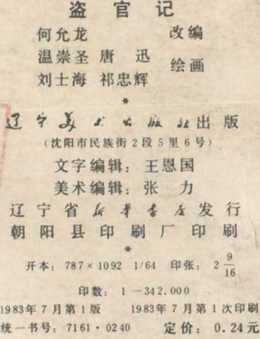 盗官记
何允龙 改编
温崇圣 唐迅 绘画
刘士海 祁忠辉
*
辽宁美术出版社出版
(沈阳市民族街2段5里6号)
文字编辑：王恩国
美术编辑：张力
辽宁省新华书店发行
朝阳县印刷厂印刷
*
开本：787×1092 1/64 印张：2 9/16
印数：1—342.000
1983年7月第1版 1983年7月第1次印刷
统一书号：7161·0240 定价：0.24元